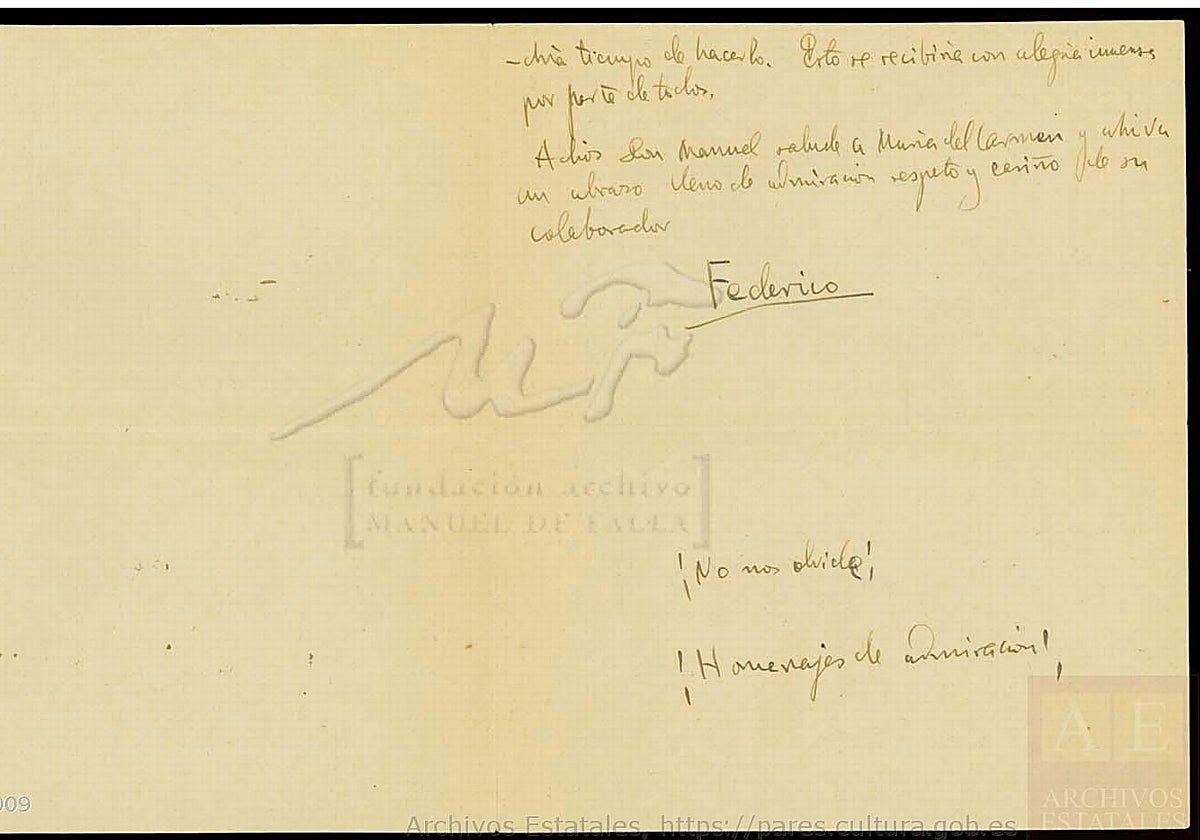 -dria tiempo de hacerlo. Esto se recibiria con alegria inmensa
por parte de todos.
Adios Don Manuel salude a Maria del Carmen y ahi va
un abrazo lleno de admiracion respeto y cariño de su
colaborador
Federico
fundación archivo
MANUEL DE FALLA
¡No nos olvide!
¡Homenajes de admiración!
A E
ARCHIVOS
ESTATALES
009
Archivos Estatales, https://pares.cultura.gob.es